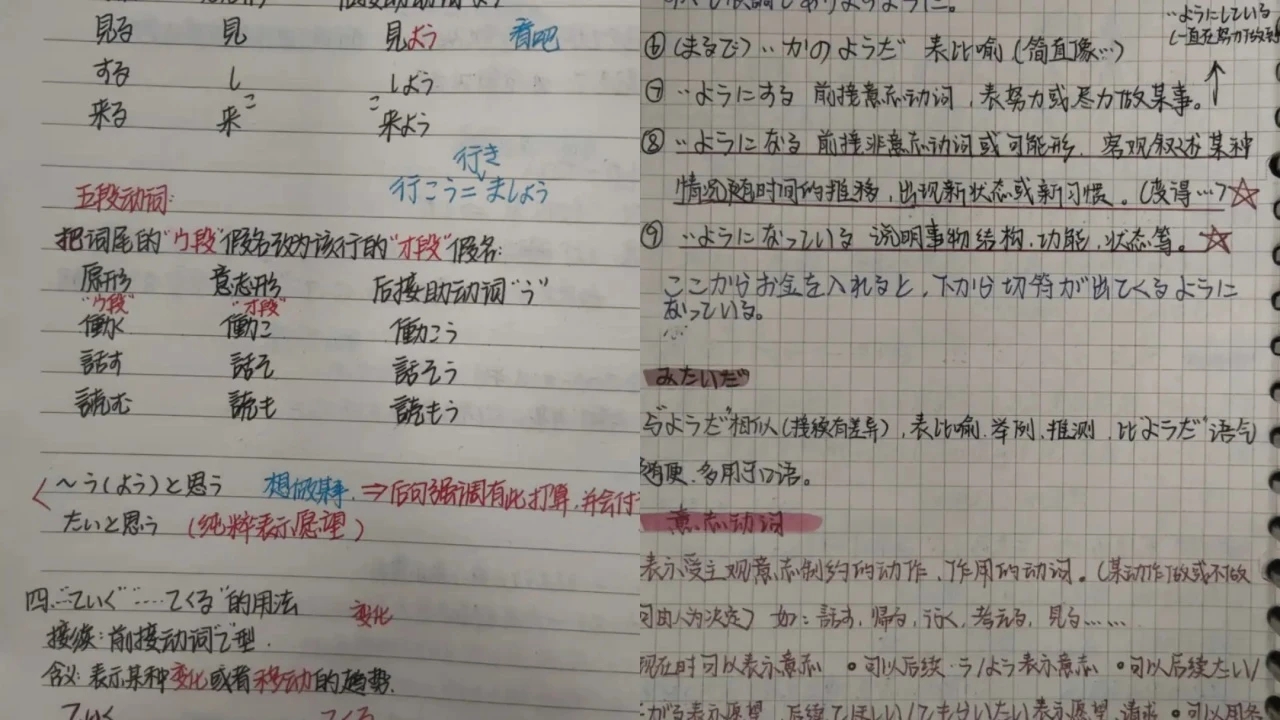 見る 見 見よう 看吧
する し しよう
来る 来こ 来こよう
行き
行こう=ましょう
五段动词:
把词尾的"ウ段"假名改为该行的"オ段"假名:
原形 意志形 后接助动词"う"
"ウ段" "オ段"
働く 働こ 働こう
話す 話そ 話そう
読む 読も 読もう
~う(よう)と思う 想做某事. ⇒后句强调有此打算,并会付
たいと思う (纯粹表示愿望)
四."…ていく""…てくる"的用法
变化
接续:前接动词"て"型.
含义:表示某种变化或者移动的趋势.
ていく てくる
…ようにしている
(一直在努力做到
⑥(まるで)…かのようだ 表比喻(简直像…)
⑦…ようにする 前接意志动词,表努力或尽力做某事。↑
⑧…ようになる 前接非意志动词或可能形.客观叙述某种
情况随时间的推移,出现新状态或新习惯。(变得…)☆
⑨…ようになっている 说明事物结构.功能.状态等。☆
ここからお金を入れると、下から切符が出てくるように
なっている。
みたいだ
与"ようだ"相似(接续有差异),表比喻.举例.推测.比"ようだ"语气
随便.多用于口语。
意志动词
表示受主观意志制约的动作、作用的动词。(某动作做或不做
可由人为决定) 如:話す,帰る,行く,考える,見る……
现在时可以表示意志 •可以后续う/よう表示意志 •可以后续たい/
たがる表示愿望.后续てほしい/てもらいたい表示愿望.请求 •可以